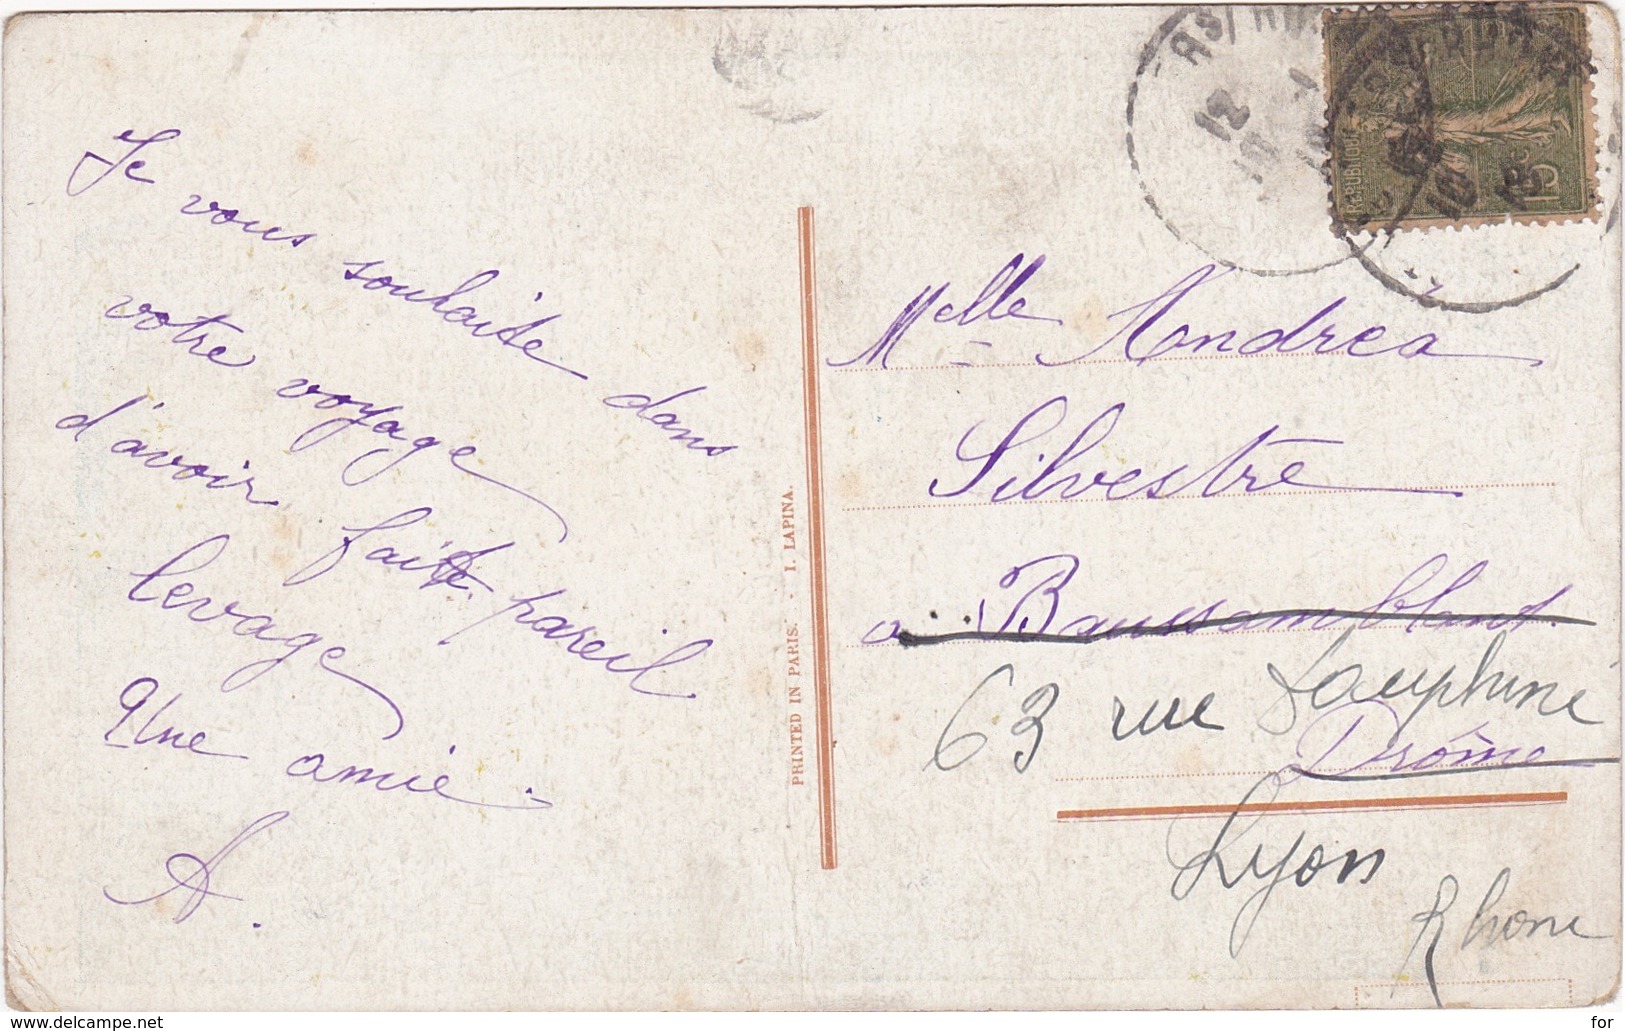 Je vous souhaite dans
votre voyage
d'avoir faite pareil
levage
Une amie.
A.
PRINTED IN PARIS. - I. LAPINA.
REPUBLIQUE
15c
Melle Andréa
Silvestre
a Baussemblant
63 rue Dauphiné
Drôme
Lyon
Rhone
www.delcampe.net
for